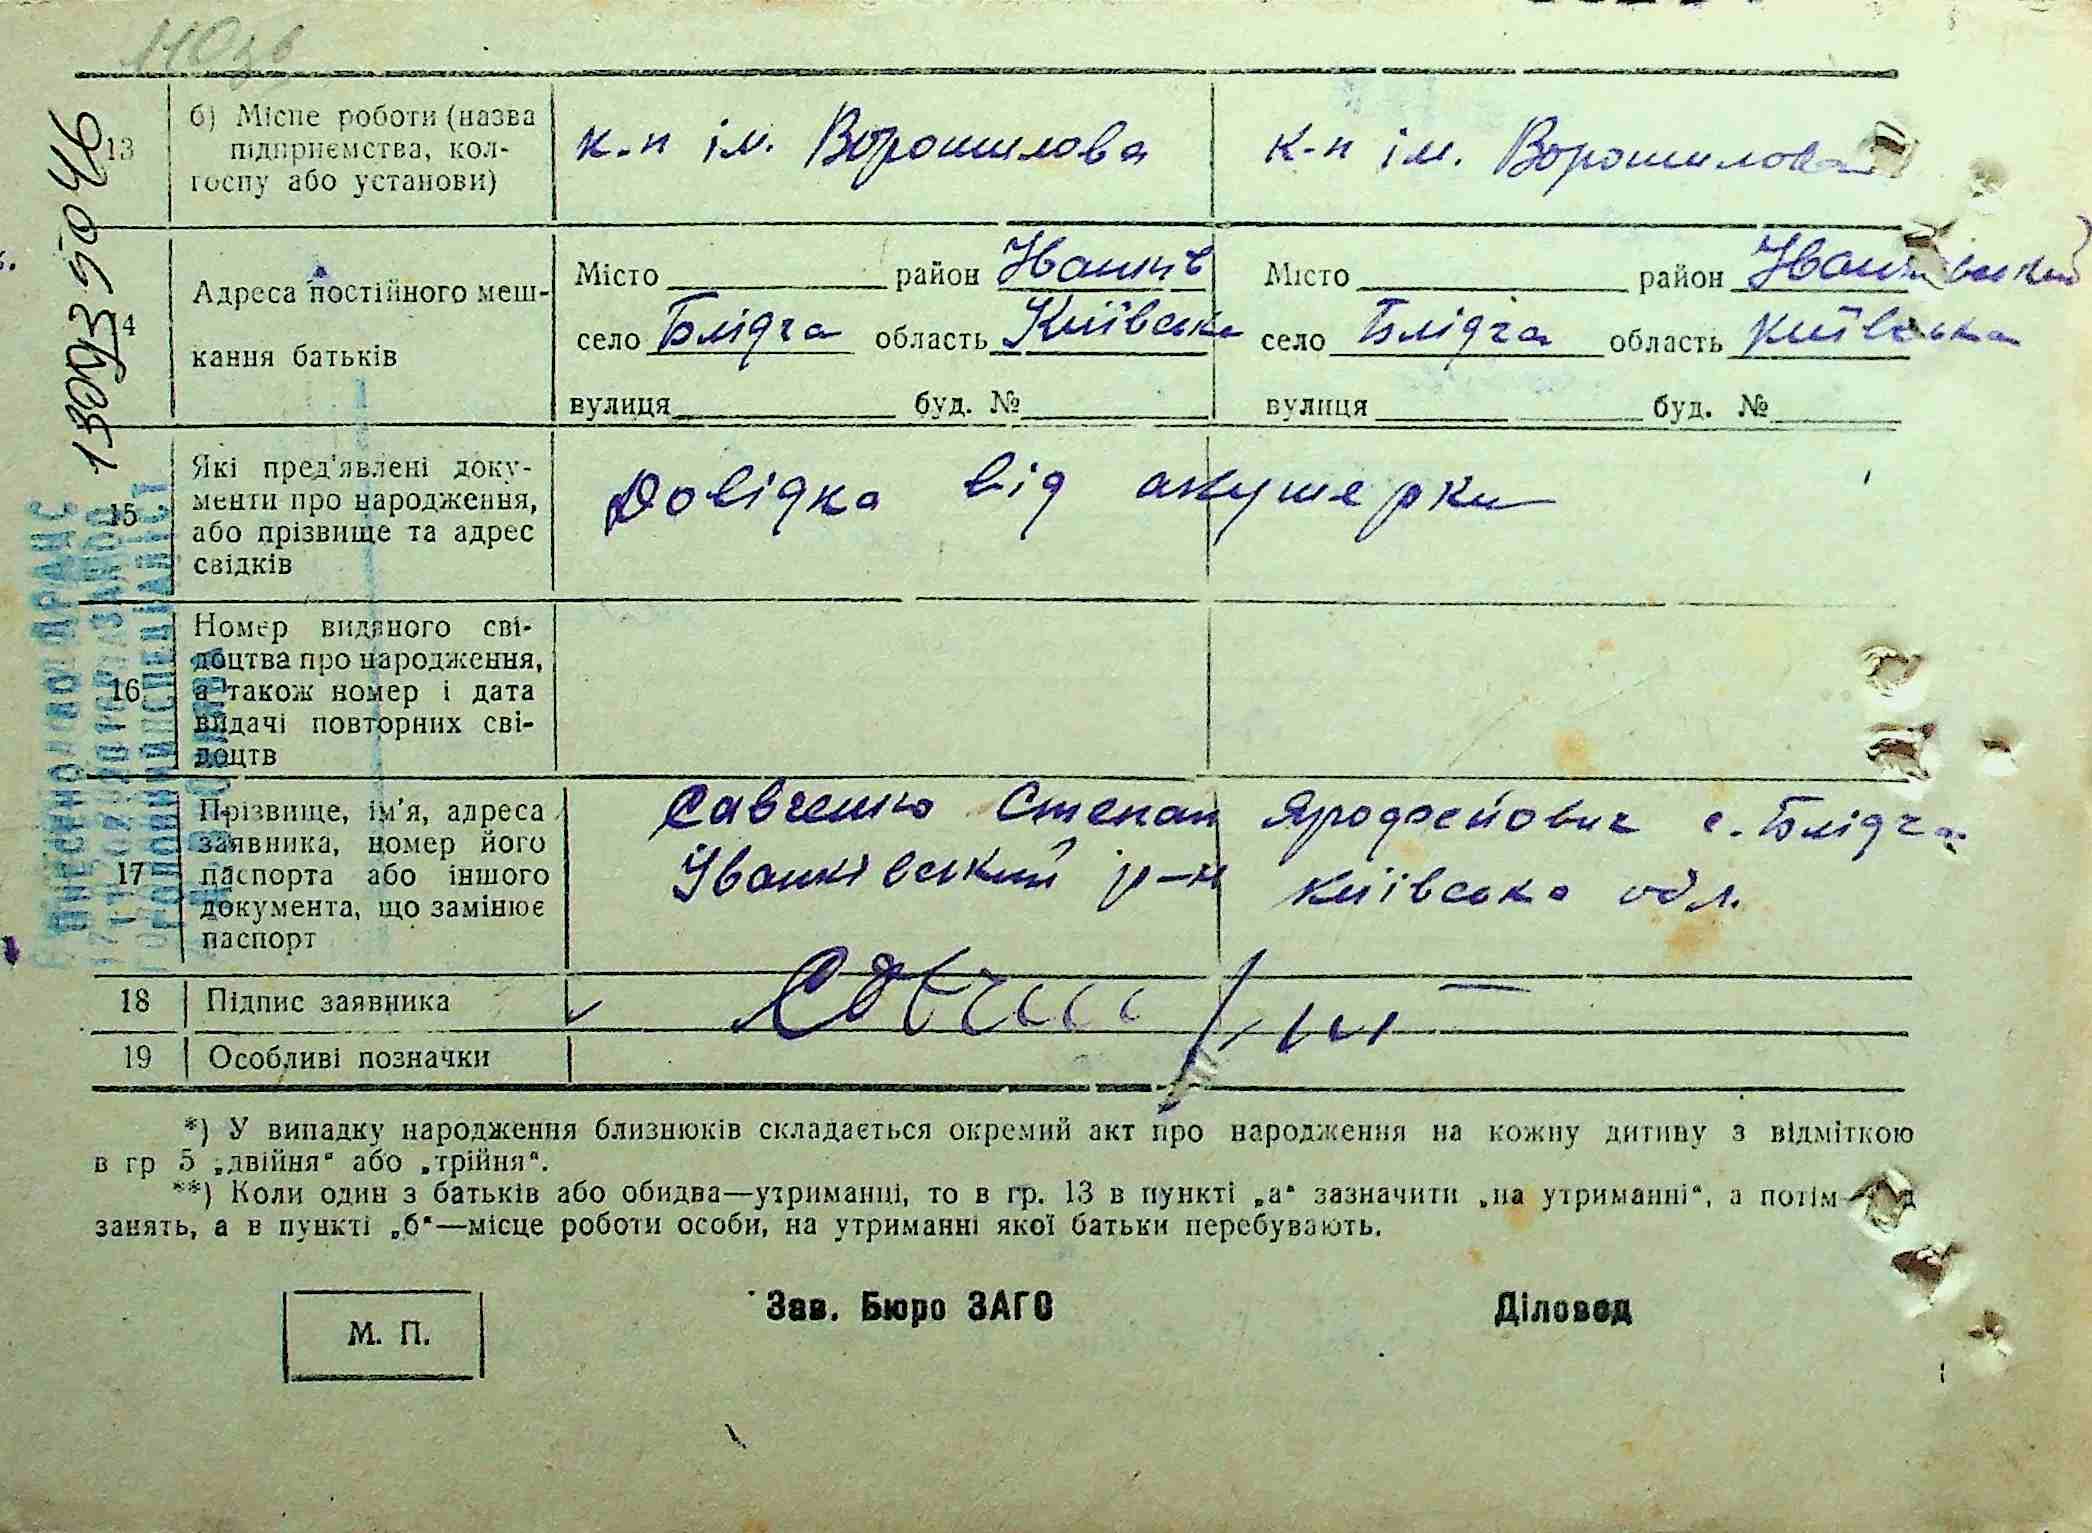 13
б) Місце роботи (назва
підприємства, кол-
госпу або установи)
к-п ім. Ворошилова
к-п ім. Ворошилова
14
Адреса постійного меш-
кання батьків
Місто район Іванків
село Блідча область Київська
вулиця буд. №
Місто район Іванківський
село Блідча область Київська
вулиця буд. №
15
Які пред'явлені доку-
менти про народження,
або прізвище та адрес
свідків
Довідка від акушерки
16
Номер виданого сві-
доцтва про народження,
а також номер і дата
видачі повторних сві-
доцтв
17
Прізвище, ім'я, адреса
заявника, номер його
паспорта або іншого
документа, що замінює
паспорт
Савченко Степан Ярофейович с. Блідча
Іванківський р-н Київська обл.
18 Підпис заявника
19 Особливі позначки
*) У випадку народження близнюків складається окремий акт про народження на кожну дитину з відміткою
в гр 5 „двійня“ або „трійня“.
**) Коли один з батьків або обидва—утриманці, то в гр. 13 в пункті „а“ зазначити „на утриманні“, а потім
занять, а в пункті „б“—місце роботи особи, на утриманні якої батьки перебувають.
М. П.
Зав. Бюро ЗАГС
Діловод